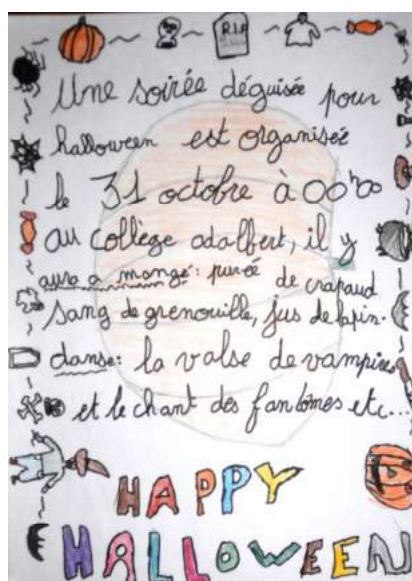 R.I.P
Une soirée déguisée pour
halloween est organisée
le 31 octobre à 00h00
au collège adalbert, il y
aura a mangé: purée de crapaud
sang de grenouille, jus de lapin.
danse: la valse de vampires
et le chant des fantômes etc...
HAPPY
HALLOWEEN